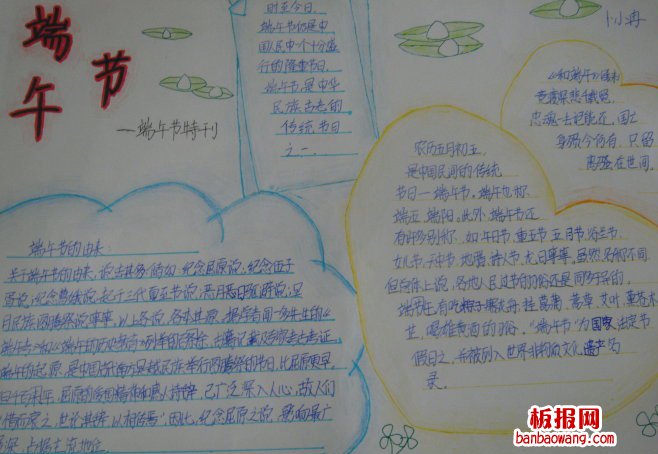 端午节
——端午节特刊
时至今日
端午节仍是中
国人民中一个十分盛
行的隆重节日
端午节是中华
民族古老的
传统节日
之一.
卜冉
《和端午》张耒
竞渡深悲千载冤,
忠魂一去讵能还,国亡
身殒今何有,只留
离骚在世间.
农历五月初五,
是中国民间的传统
节日——端午节,端午也称
端五,端阳。此外,端午节还
有许多别称,如:午日节、重五节五月节浴兰节
女儿节,天中节、地腊、诗人节、龙日等等,虽然名称不同
但总体上说,各地人民过节的习俗还是同多于异的。
端午节有吃粽子赛龙舟,挂菖蒲、蒿草、艾叶,薰苍术
芷,喝雄黄酒的习俗,"端午节"为国家法定节
假日之一,并被列入世界非物质文化遗产名
录。
端午节的由来
关于端午节的由来,说法甚多,诸如:纪念屈原说,纪念伍子
胥说,纪念曹娥说,起于三代夏至节说,恶月恶日驱避说,吴
月民族图腾祭说等等,以上各说,各本其源,据学者闻一多先生的《
端午考》和《端午的历史教育》列举的
端午的起源,是中国古代南方吴越民族举行图腾祭的节日,比屈原更早,
屈原的爱国精神和感人诗词,已广泛深入人心,故人们
惜而哀之,世论其辞,以相传焉",因此,纪念屈原之说,影响最广
最深,占据主流地位
板报网
banbaowang.com